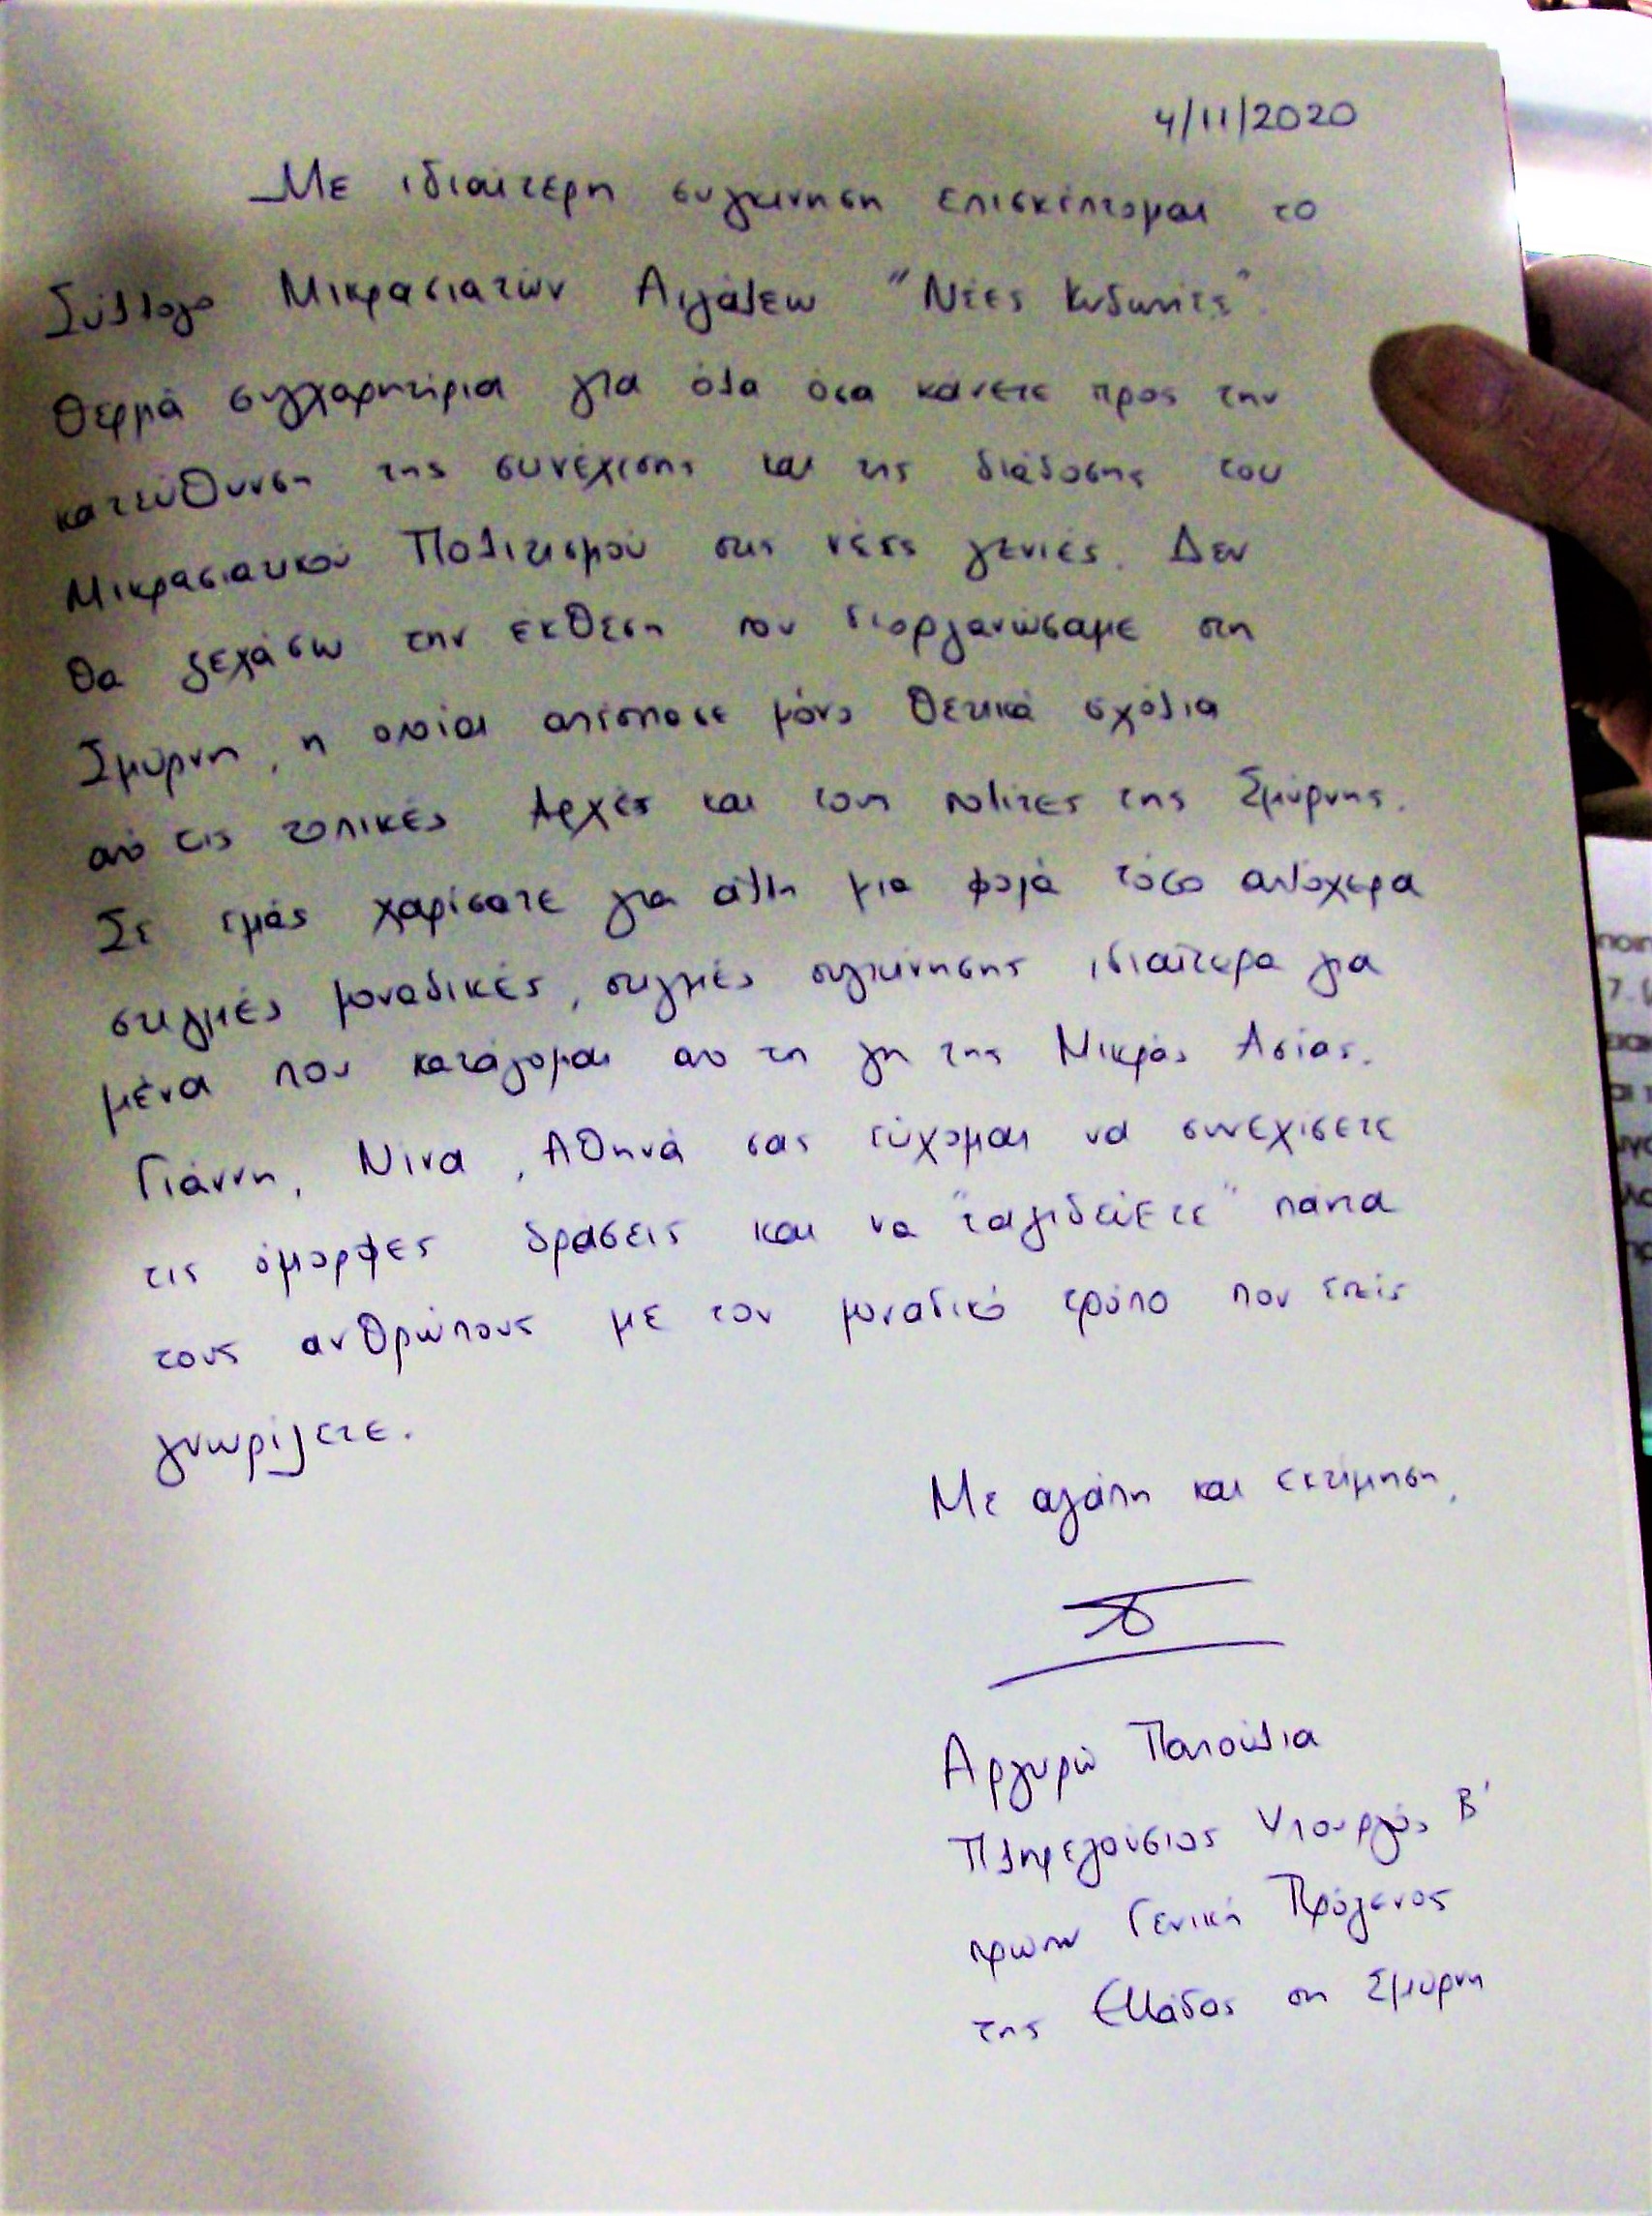 4/11/2020
Με ιδιαίτερη συγκίνηση επισκέπτομαι το
Σύλλογο Μικρασιατών Αιγάλεω "Νέες Κυδωνίες".
Θερμά συγχαρητήρια για όλα όσα κάνετε προς την
κατεύθυνση της συνέχισης και της διάδοσης του
Μικρασιατικού Πολιτισμού στις νέες γενιές. Δεν
θα ξεχάσω την έκθεση που διοργανώσαμε στη
Σμύρνη, η οποία απέσπασε μόνο θετικά σχόλια
από τις τοπικές Αρχές και τους πολίτες της Σμύρνης.
Σε εμάς χαρίσατε για άλλη μια φορά τόσο απλόχερα
στιγμές μοναδικές, στιγμές συγκίνησης ιδιαίτερα για
μένα που κατάγομαι απο τη γη της Μικράς Ασίας.
Γιάννη, Νίνα, Αθηνά σας εύχομαι να συνεχίσετε
τις όμορφες δράσεις και να "ταξιδεύετε" πάντα
τους ανθρώπους με τον μοναδικό τρόπο που εσείς
γνωρίζετε.
Με αγάπη και εκτίμηση,
Αργυρώ Παπούλια
Πληρεξούσιος Υπουργός Β'
πρώην Γενική Πρόξενος
της Ελλάδας στη Σμύρνη